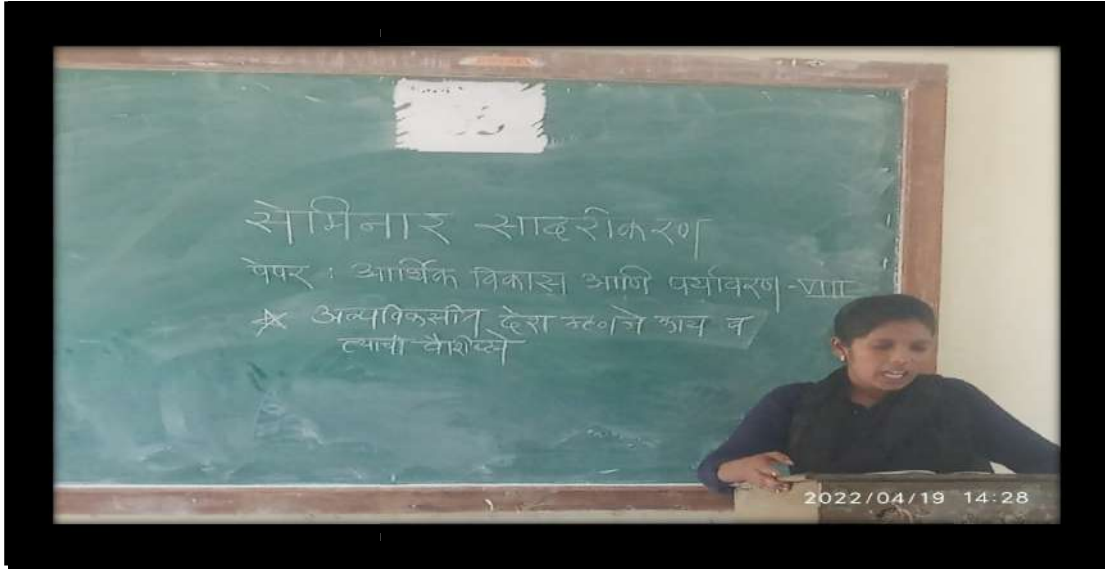 सेमिनार सादरीकरण
पेपर : आर्थिक विकास आणि पर्यावरण -VIII
अल्पविकसीत देश म्हणजे काय व
त्याची वैशिष्ट्ये
2022/04/19 14:28